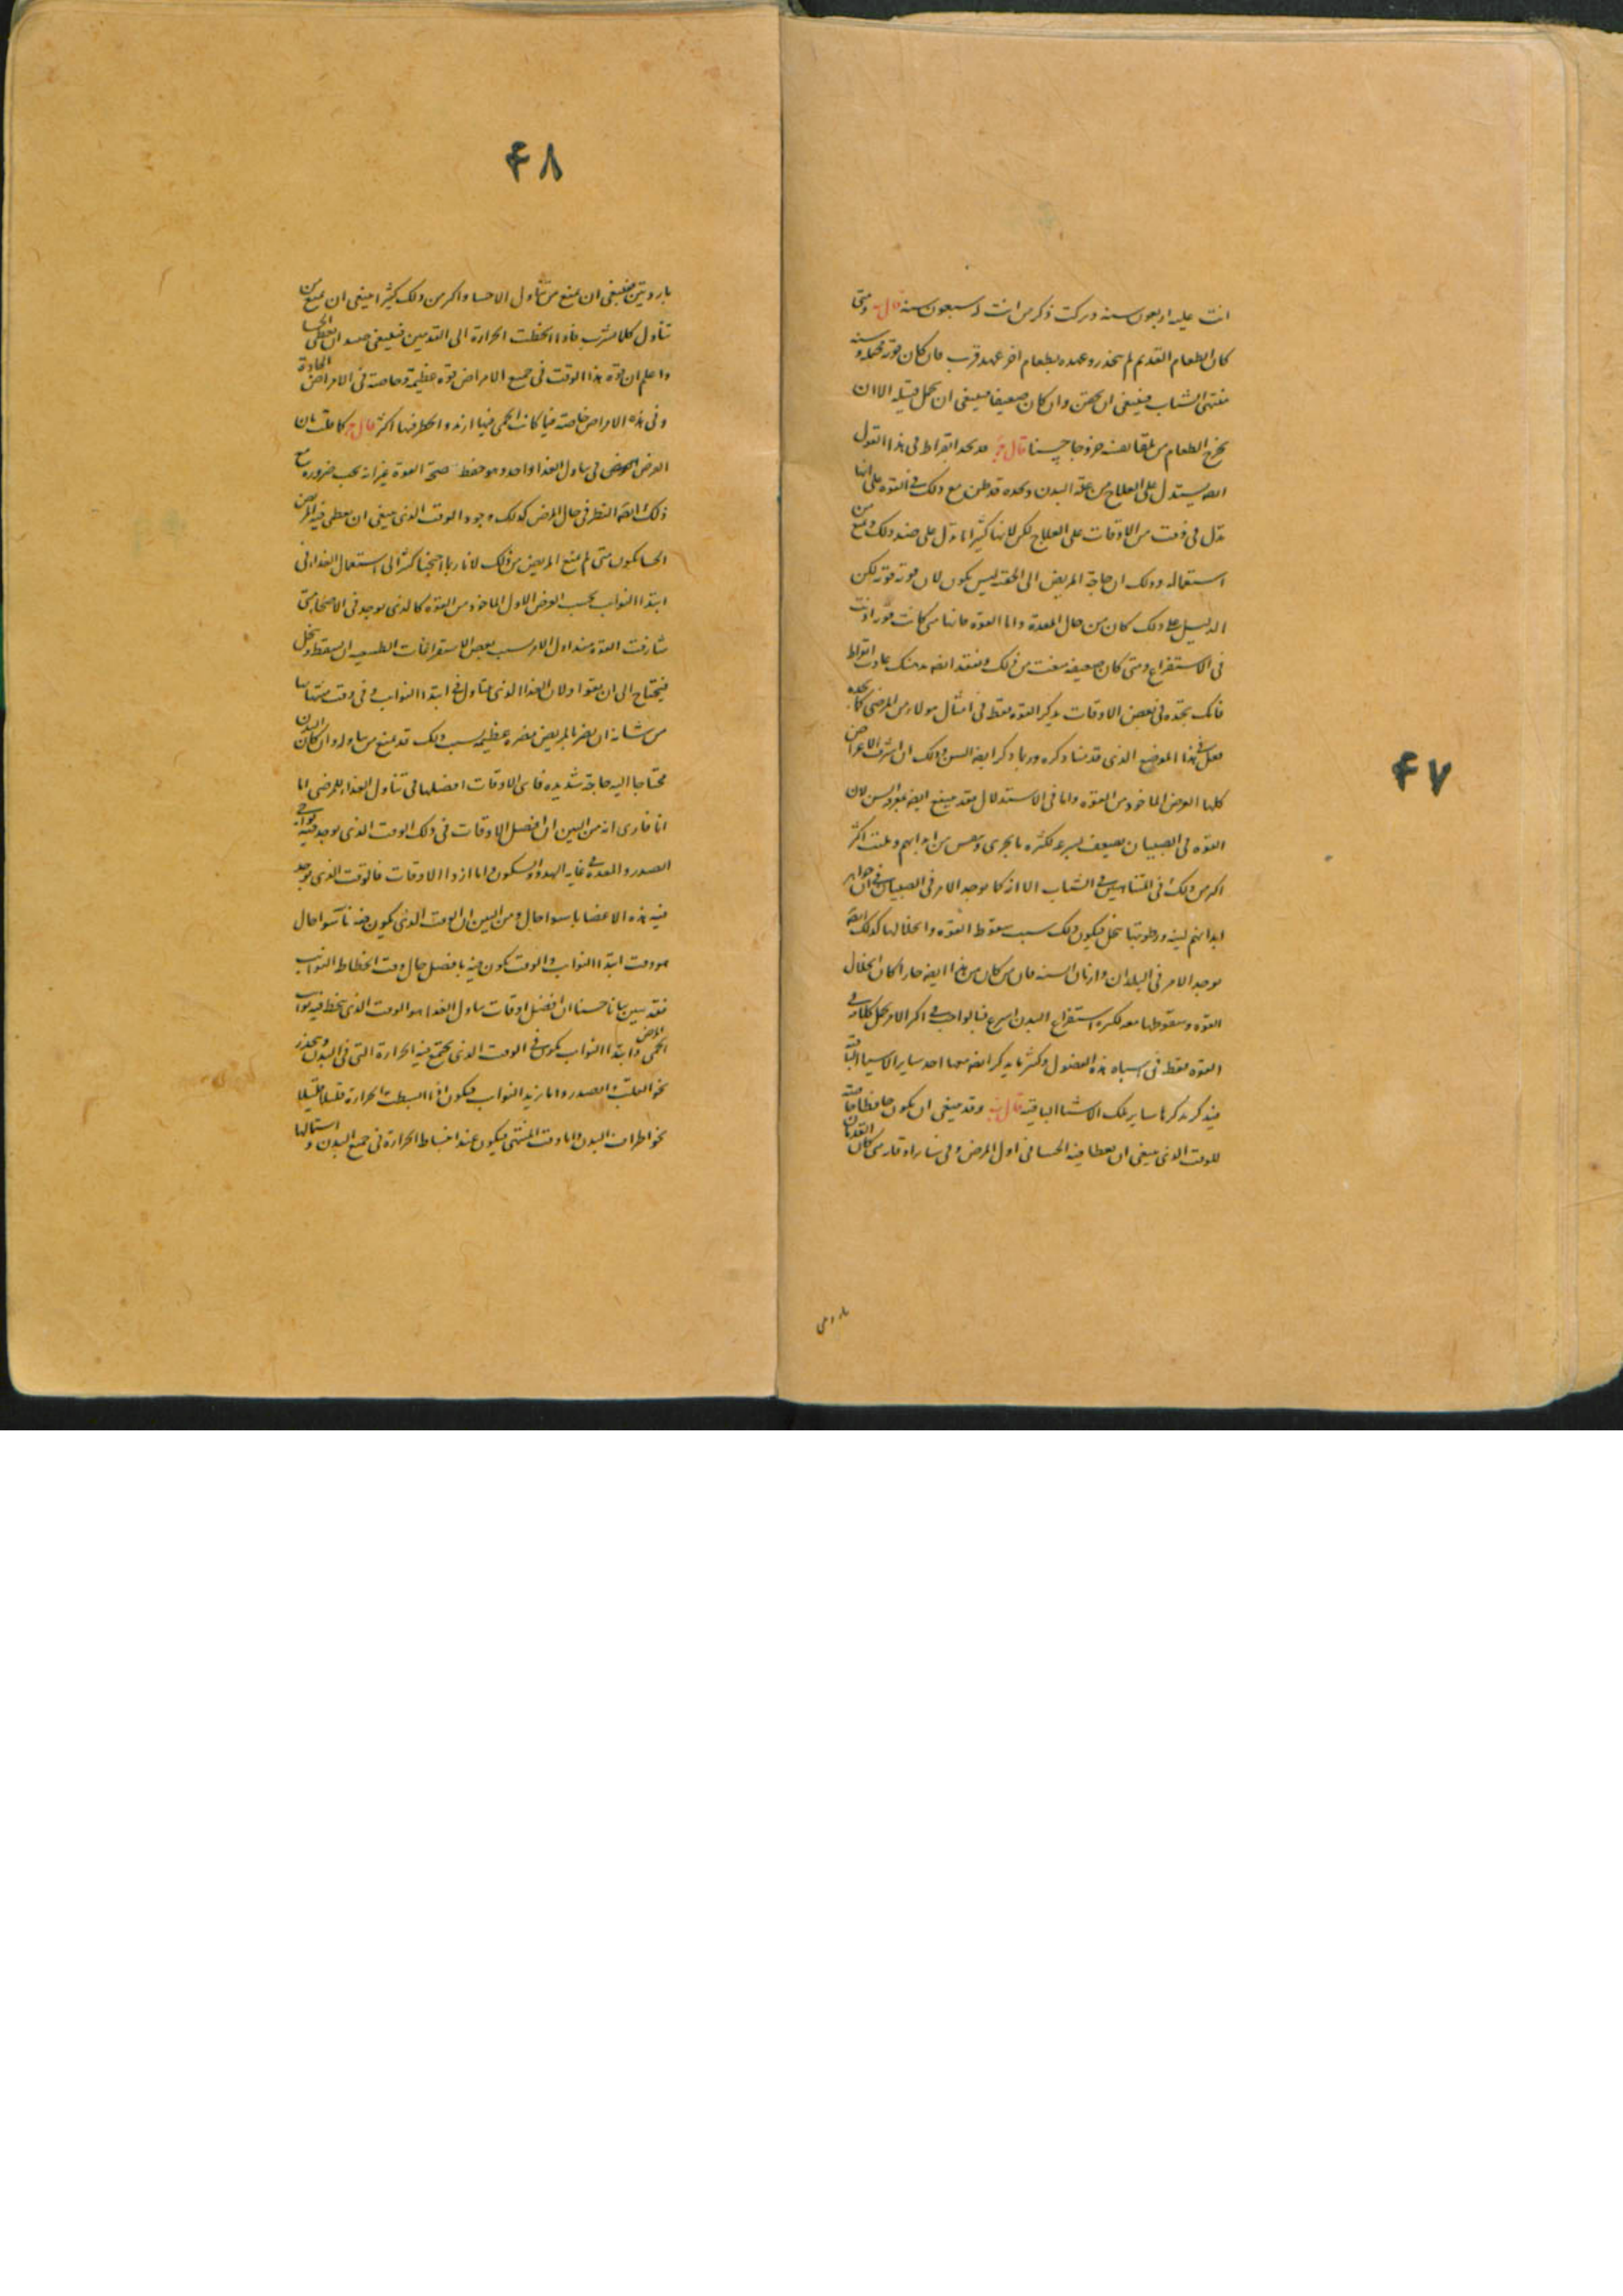 ۴۷
اتت عليه اربعون سنه وتركت ذكر من اتت له سبعون سنه قال ب ومتى
كان الطعام القديم لم ينحدر وعهده بطعام اخر عهد قريب فان كان قوته وسنه
منتهى الشباب فينبغي ان يحقن وان كان ضعيفا فينبغي ان يحمل فتيله الا ان
يخرج الطعام من تلقا نفسه خروجا حسنا قال ج قد نجد ابقراط في هذا القول
ايضه يستدل على العلاج من علة البدن وحده قد ظن مع ذلك في القوه على انها
تدل في وقت من الاوقات على العلاج لكن لانها كثيرا ما تدل على ضد ذلك وتمنع من
استعماله وذلك ان حاجة المريض الى الحقنه ليس يكون لان قوته قويه لكن
الدليل على ذلك كان من حال المعدة واما القوه فانها متى كانت قويه اذنت
في الاستفراغ ومتى كان ضعيفه منعت من ذلك عادت ابقراط
فانك تجده في بعض الاوقات يذكر القوه فقط في امثال هولاء من المرضى كما نجده
فعل في هذا الموضع الذي قدمنا ذكره وربما ذكر ايضه السن وذلك ان اشرف الاعراض
كلها العرض الماخوذ من القوه واما في الاستدلال فقد ينتفع ايضه بمعرفة السن لان
القوه في الصبيان تضعف بسرعه لكثره ما يجرى من ابدانهم
اكثر من ذلك في المتناهين في الشباب الا انه كما يوجد الامر في الصبيان في ان جواهر
ابدانهم لينه ورطوبتها تتحل فيكون ذلك سبب سقوط القوه وانحلالها كذلك ايضه
يوجد الامر في البلدان واوقات السنه فان من كان من هذا ايضه حارا كان انحلال
القوه وسقوطها معه لكثره استفراغ البدن اسرع فبالواجب في اكثر الامر
القوه فقط في اسباه هذه الفصول وكثيرا ما يذكر ايضه معها احد ساير الاشيا الباقيه
فيذكر بذكرها ساير تلك الاشيا الباقيه قال ب وقد ينبغي ان يكون حافظا
للوقت الذي ينبغي ان يعطا فيه الحسا في اول المرض وفي ساير اوقاته متى كان القدمان
باردتين
۴۸
باردتين فينبغي ان يمنع من تناول الاحسا واكثر من ذلك كثيرا ينبغي ان يمنع من
تناول كلما يشرب فاذا انحطت الحرارة الى القدمين فينبغي حينئذ ان يعطى الحسا
واعلم ان قوه هذا الوقت في جميع الامراض قوه عظيمة وخاصته في الامراض الحادة
وفي هذه الامراض خاصته فيما كانت الحمى فيها ازيد والخطر فيها اكثر قال ج كما قلت بان
الغرض في تناول الغذا واحد وهو حفظ صحة القوة غير انه يجب ضروره مع
ذلك ايضه النظر في حال المرض كذلك وجود الوقت الذي ينبغي ان يعطى فيه المريض
الحسا يكون متى لم يمنع المريض من ذلك لانا ربما احتجنا كثيرا الى استعمال الغذا في
ابتدا النوايب بحسب الغرض الاول الماخوذ من القوه كالذي يوجد في الاصحا متى
شارفت القوه منذ اول الامر بسبب بعض الاستفراغات الطبيعيه ان يسقط وتنحل
فتحتاج الى ان يقوا ولان الغذا الذي يتناول في ابتدا النوايب وفي وقت منتهاها
من شانه ان يضر بالمريض مضره عظيمه بسبب ذلك قد يمنع من تناوله وان كان البدن
محتاجا اليه حاجة شديده فاي الاوقات افضلها في تناول الغذاء للمرضى اما
انا فارى انه من البين ان افضل الاوقات في ذلك الوقت الذي يوجد فيه نواحي
الصدر والمعدة في غايه الهدو والسكون واما ازدا الاوقات فالوقت الذي يوجد
فيه هذه الاعضا باسوا حال ومن البين ان الوقت الذي يكون فيه باسوا حال
هو وقت ابتدا النوايب والوقت يكون فيه بافضل حال وقت انحطاط النوايب
فقد تبين بيانا حسنا ان افضل اوقات تناول الغذا هو الوقت الذي ينحط فيه نوايب
الحمى وابتدا النوايب يكون في الوقت الذي يجتمع فيه الحرارة التي في البدن وينحدر
نحو القلب والصدر واما تزيد النوايب فيكون اذا انبسطت الحرارة قليلا قليلا
نحو اطراف البدن واما وقت المنتهى فيكون عند انبساط الحرارة في جميع البدن و